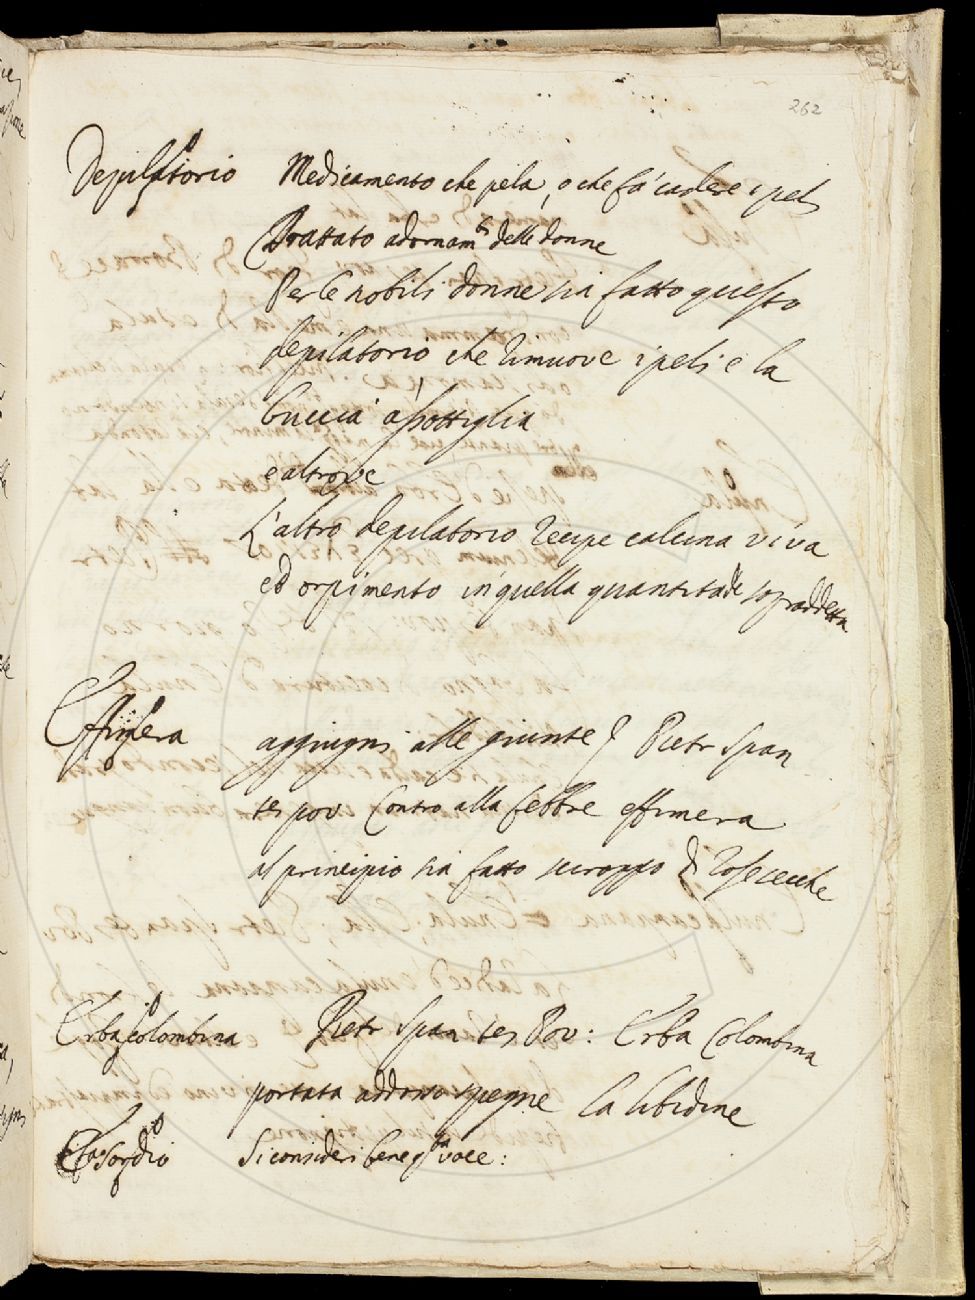 262
Depilatorio Medicamento che pela, o che fà cadere i peli
Trattato adornam.ti delle donne
Per le nobili donne sia fatto questo
depilatorio che rimuove i peli e la
buccia assottiglia
e altrove
L'altro depilatorio Recipe calcina viva
ed orpimento in quella quantitade sopraddetta
Effimera aggiugni alle giunte Pietr Span
tes pov Contro alla febbre effimera
al principio sia fatto sciroppo di Rose secche
Erba colombina Pietr Span tes Pov: Erba Colombina
portata addosso spegne la libidine
Esordio Si consideri bene q.ta voce: